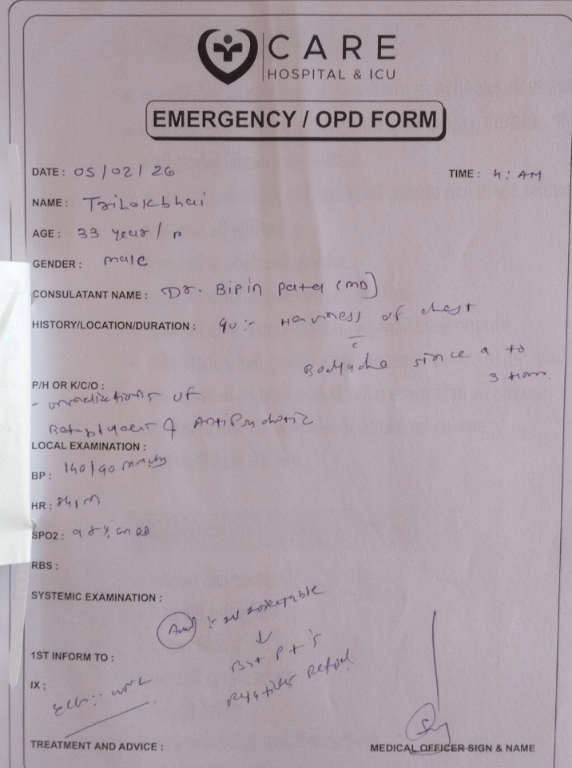 CARE
HOSPITAL & ICU
EMERGENCY / OPD FORM
DATE : 05/02/26 TIME : 4: AM
NAME : Trilokbhai
AGE : 33 year / m
GENDER : male
CONSULATANT NAME : Dr. Bipin Patel (MD)
HISTORY/LOCATION/DURATION : Heaviness of chest
c
Bodyache since 2 to
3 
P/H OR K/C/O :
- of
Antipsychotic
LOCAL EXAMINATION :
BP : 140/90 mmHg
HR : 84/M
SPO2 : 98% on RA
RBS :
SYSTEMIC EXAMINATION :
Adv :-
↓
But Pt's
1ST INFORM TO :
Relatives Refusal
IX : ECG :- WNL
TREATMENT AND ADVICE : MEDICAL OFFICER SIGN & NAME